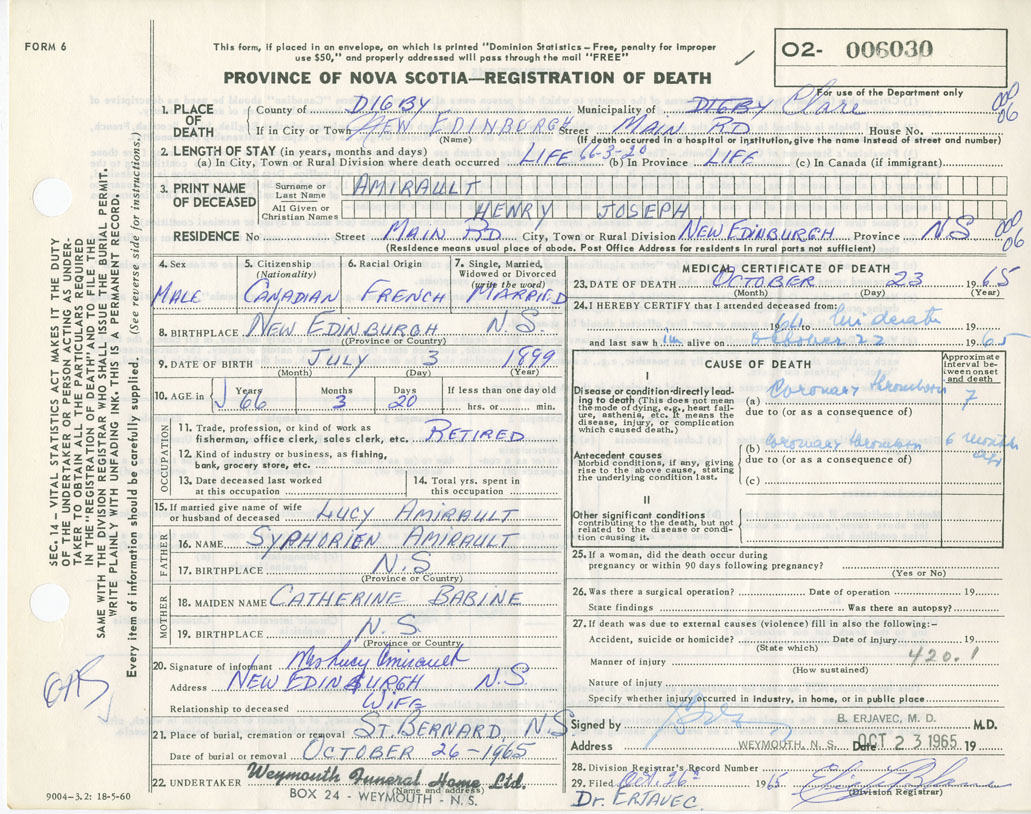 FORM 6
This form, if placed in an envelope, on which is printed "Dominion Statistics – Free, penalty for improper
use $50," and properly addressed will pass through the mail "FREE"
PROVINCE OF NOVA SCOTIA—REGISTRATION OF DEATH
O2- 006030
For use of the Department only
1. PLACE OF DEATH
County of DIGBY Municipality of DIGBY Clare
000 06
If in City or Town NEW EDINBURGH Street MAIN RD House No.
(Name) (If death occurred in a hospital or institution, give the name instead of street and number)
2. LENGTH OF STAY (in years, months and days)
(a) In City, Town or Rural Division where death occurred LIFE 66-3-20 (b) In Province LIFE (c) In Canada (if immigrant)
3. PRINT NAME OF DECEASED
Surname or Last Name AMIRAULT
All Given or Christian Names HENRY JOSEPH
RESIDENCE No Street MAIN RD City, Town or Rural Division NEW EDINBURGH Province N S
000 06
Residence means usual place of abode. Post Office Address for residents in rural parts not sufficient)
4. Sex 5. Citizenship (Nationality) 6. Racial Origin 7. Single, Married, Widowed or Divorced (write the word)
MALE CANADIAN FRENCH MARRIED
8. BIRTHPLACE NEW EDINBURGH N.S.
(Province or Country)
9. DATE OF BIRTH JULY 3 1899
(Month) (Day) (Year)
10. AGE in Years Months Days If less than one day old
66 3 20 hrs. or min.
OCCUPATION
11. Trade, profession, or kind of work as
fisherman, office clerk, sales clerk, etc. RETIRED
12. Kind of industry or business, as fishing,
bank, grocery store, etc.
13. Date deceased last worked
at this occupation
14. Total yrs. spent in
this occupation
15. If married give name of wife
or husband of deceased LUCY AMIRAULT
FATHER
16. NAME SYPHORIEN AMIRAULT
17. BIRTHPLACE N.S
(Province or Country)
MOTHER
18. MAIDEN NAME CATHERINE BABINE
19. BIRTHPLACE N.S.
(Province or Country)
20. Signature of informant Mrs Lucy Amirault
Address NEW EDINBURGH N.S
Relationship to deceased WIFE
21. Place of burial, cremation or removal ST. BERNARD, N S
Date of burial or removal OCTOBER 26 - 1965
22. UNDERTAKER Weymouth Funeral Home Ltd.
(Name and address)
BOX 24 - WEYMOUTH - N.S.
9004-3.2: 18-5-60
MEDICAL CERTIFICATE OF DEATH
23. DATE OF DEATH OCTOBER 23 1965
(Month) (Day) (Year)
24. I HEREBY CERTIFY that I attended deceased from:
1964 to 19
and last saw him alive on October 22 1965
CAUSE OF DEATH
Approximate interval between onset and death
I
Disease or condition directly leading to death (This does not mean
the mode of dying, e.g., heart failure, asthenia, etc. It means the
disease, injury, or complication
which caused death.)
(a) Coronary thrombosis
due to (or as a consequence of)
Antecedent causes
Morbid conditions, if any, giving
rise to the above cause, stating
the underlying condition last.
(b) Coronary thrombosis 6 months ago
due to (or as a consequence of)
(c)
II
Other significant conditions
contributing to the death, but not
related to the disease or condition causing it.
25. If a woman, did the death occur during
pregnancy or within 90 days following pregnancy?
(Yes or No)
26. Was there a surgical operation? Date of operation 19
State findings Was there an autopsy?
27. If death was due to external causes (violence) fill in also the following:-
Accident, suicide or homicide? Date of injury 19
(State which) 420.1
Manner of injury
(How sustained)
Nature of injury
Specify whether injury occurred in industry, in home, or in public place
Signed by B. ERJAVEC, M. D. M.D.
Address WEYMOUTH, N. S. Date OCT 23 1965 19
28. Division Registrar's Record Number
29. Filed Oct. 26th 1965
(Division Registrar)
Dr. ERJAVEC.
SEC. 14 – VITAL STATISTICS ACT MAKES IT THE DUTY
OF THE UNDERTAKER OR PERSON ACTING AS UNDERTAKER TO OBTAIN ALL THE PARTICULARS REQUIRED
IN THE "REGISTRATION OF DEATH" AND TO FILE THE
SAME WITH THE DIVISION REGISTRAR WHO SHALL ISSUE THE BURIAL PERMIT.
WRITE PLAINLY WITH UNFADING INK. THIS IS A PERMANENT RECORD.
Every item of information should be carefully supplied. (See reverse side for instructions.)